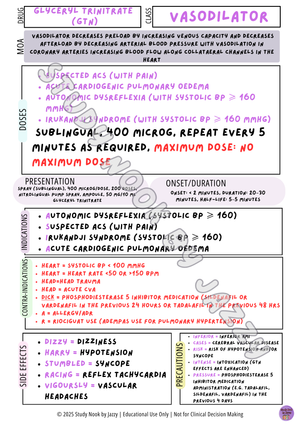 DRUG
GLYCERYL TRINITRATE
(GTN)
CLASS
VASODILATOR
MOA
VASODILATOR DECREASES PRELOAD BY INCREASING VENOUS CAPACITY AND DECREASES
AFTERLOAD BY DECREASING ARTERIAL BLOOD PRESSURE WITH VASODILATION IN
CORONARY ARTERIES INCREASING BLOOD FLOW ALONG COLLATERAL CHANNELS IN THE
HEART
DOSES
SUSPECTED ACS (WITH PAIN)
ACUTE CARDIOGENIC PULMONARY OEDEMA
AUTONOMIC DYSREFLEXIA (WITH SYSTOLIC BP ≥ 160
MMHG)
IRUKANDJI SYNDROME (WITH SYSTOLIC BP ≥ 160 MMHG)
SUBLINGUAL, 400 MICROG, REPEAT EVERY 5
MINUTES AS REQUIRED, MAXIMUM DOSE: NO
MAXIMUM DOSE
PRESENTATION
SPRAY (SUBLINGUAL), 400 MICROG/DOSE, 200 DOSES
NITROLINGUAL PUMP SPRAY, AMPOULE, 50 MG/10 ML
GLYCERYL TRINITRATE
ONSET/DURATION
ONSET: < 2 MINUTES, DURATION: 20-30
MINUTES, HALF-LIFE: 3-5 MINUTES
INDICATIONS
AUTONOMIC DYSREFLEXIA (SYSTOLIC BP ≥ 160)
SUSPECTED ACS (WITH PAIN)
IRUKANDJI SYNDROME (SYSTOLIC BP ≥ 160)
ACUTE CARDIOGENIC PULMONARY OEDEMA
CONTRA-INDICATIONS
HEART = SYSTOLIC BP < 100 MMHG
HEART = HEART RATE <50 OR >150 BPM
HEAD=HEAD TRAUMA
HEAD = ACUTE CVA
DICK = PHOSPHODIESTERASE 5 INHIBITOR MEDICATION (SILDENAFIL OR
VARDENAFIL IN THE PREVIOUS 24 HOURS OR TADALAFIL IN THE PREVIOUS 48 HRS
A = ALLERGY/ADR
R = RIOCIGUAT USE (ADEMPAS USE FOR PULMONARY HYPERTENSION)
SIDE EFFECTS
DIZZY = DIZZINESS
HARRY = HYPOTENSION
STUMBLED = SYNCOPE
RACING = REFLEX TACHYCARDIA
VIGOUROUSLY = VASCULAR
HEADACHES
PRECAUTIONS
INFERIOR = INFERIOR AMI
CASES = CEREBRAL VASCULAR DISEASE
RISK = RISK OF HYPOTENSION AND/OR
SYNCOPE
INTENSE = INTOXICATION (GTN
EFFECTS ARE ENHANCED)
PRESSURE = PHOSPHODIESTERASE 5
INHIBITOR MEDICATION
ADMINISTRATION (E.G. TADALAFIL,
SILDENAFIL, VARDENAFIL) IN THE
PREVIOUS 4 DAYS
© 2025 Study Nook by Jazzy | Educational Use Only | Not for Clinical Decision Making
Study Nook by Jazzy